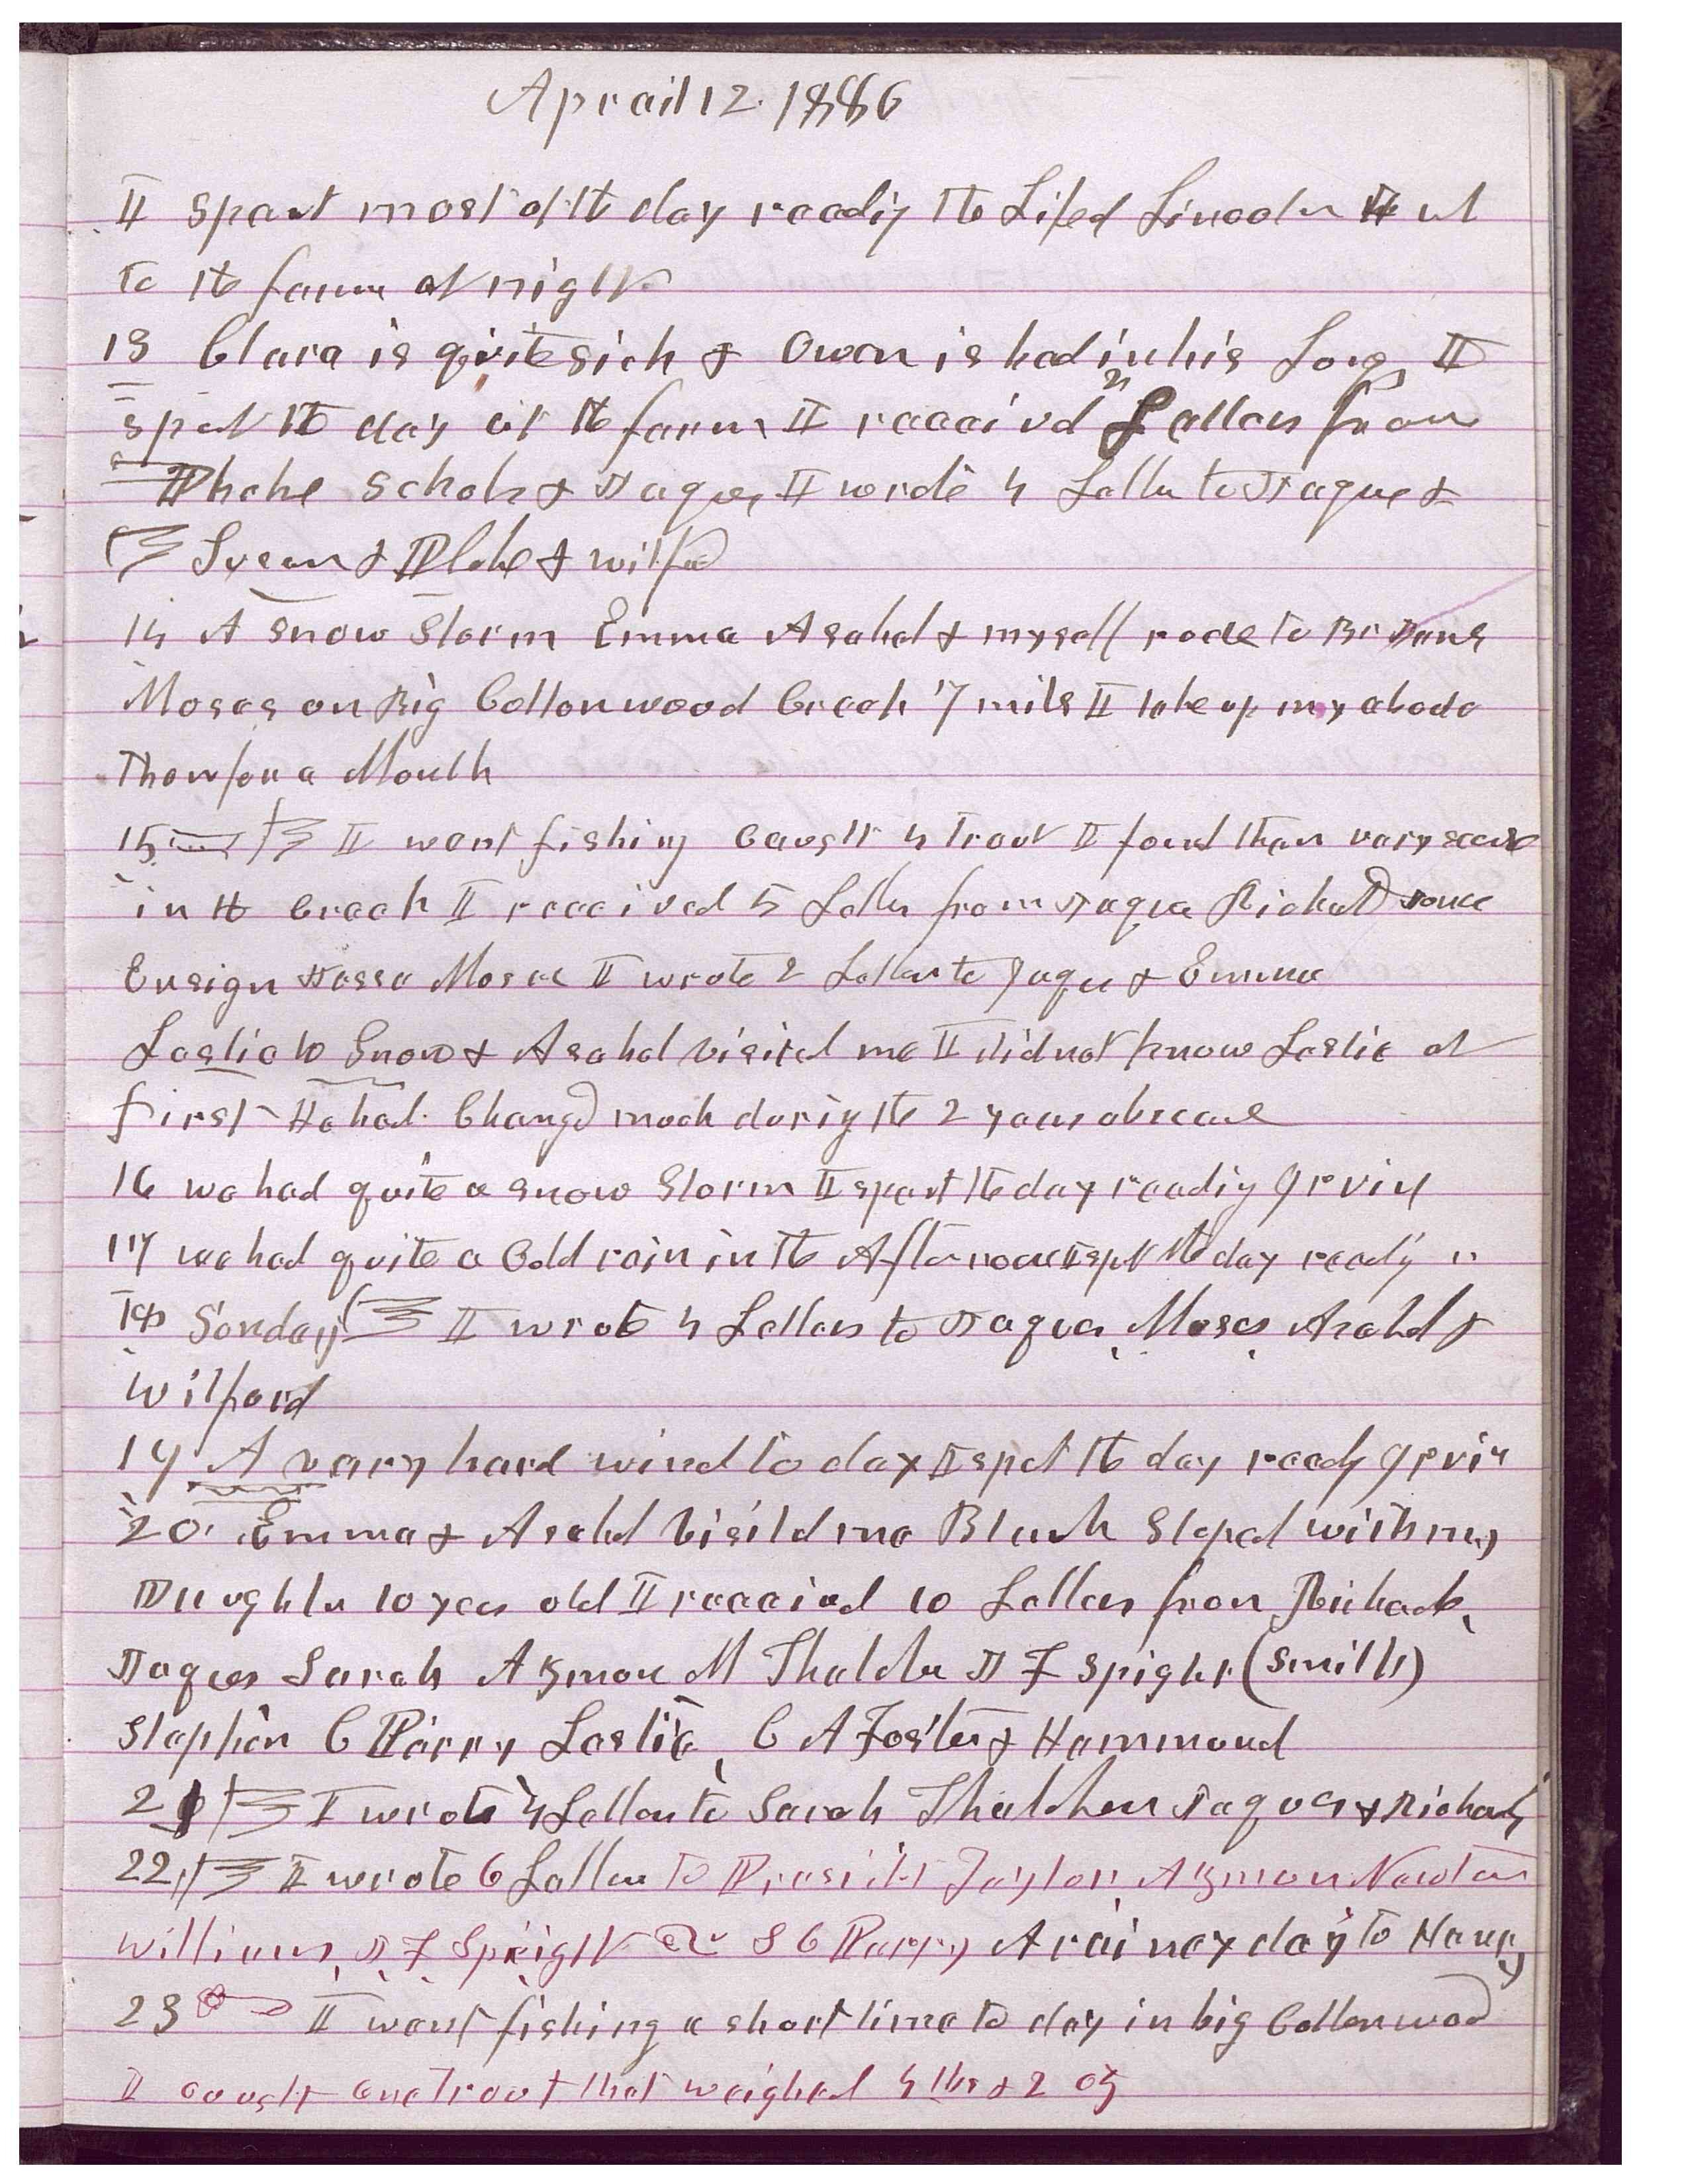 Aprail 12. 1886
I spent most of the day readig the Life of Lincoln went
to the farm at night
13 Clara is quite sick & Owen is bad in his Lungs I
spent the day at the farm I received 2 Letters from
Phebe Scholes & Jaques I wrote 4 Letters to Jaques &
Susan & Phebe & Wilford
14 A snow Storm Emma Asahel & myself rode to Br
Moses on Big Cottonwood Creek 7 miles I take up my abode
There for a Month
15 I went fishing Caught 4 trout I found them vary scarce
in the Creek I received 5 Letters from Jaques Richards
Ensign Jesse Moses I wrote 2 Letters to Jaques & Emma
Leslie W Snow & Asahel visited me I did not know Leslie at
first He had Changed much durig the 2 years absence
16 we had quite a snow Storm I spent the day readig Irving
17 we had quite a Cold rain in the Afternoon I spent the day readig "
18 Sunday I wrote 4 Letters to Jaques, Moses, Asahel &
Wilford
19 A vary hard wind to day I spent the day readg Irving
20. Emma & Asahel visited me Blanch Stoped with me my
Daughter 10 years old I received 10 Letters from Richards,
Jaques Sarah Azmon M Thatcher J F Spight (Smith)
Stephen C Parry Leslie, C A Foster & Hammond
21 I wrote 4 Letters to Sarah Thatcher Jaques & Richards
22, I wrote 6 Letters to Presidet Taylor, Azmon Newton
Williams, J F Speight & S C Parry A rainey day to Harry
23 I went fishing a short time to day in big Cottonwood
I caught one trout that weighed 4 lbs & 2 oz